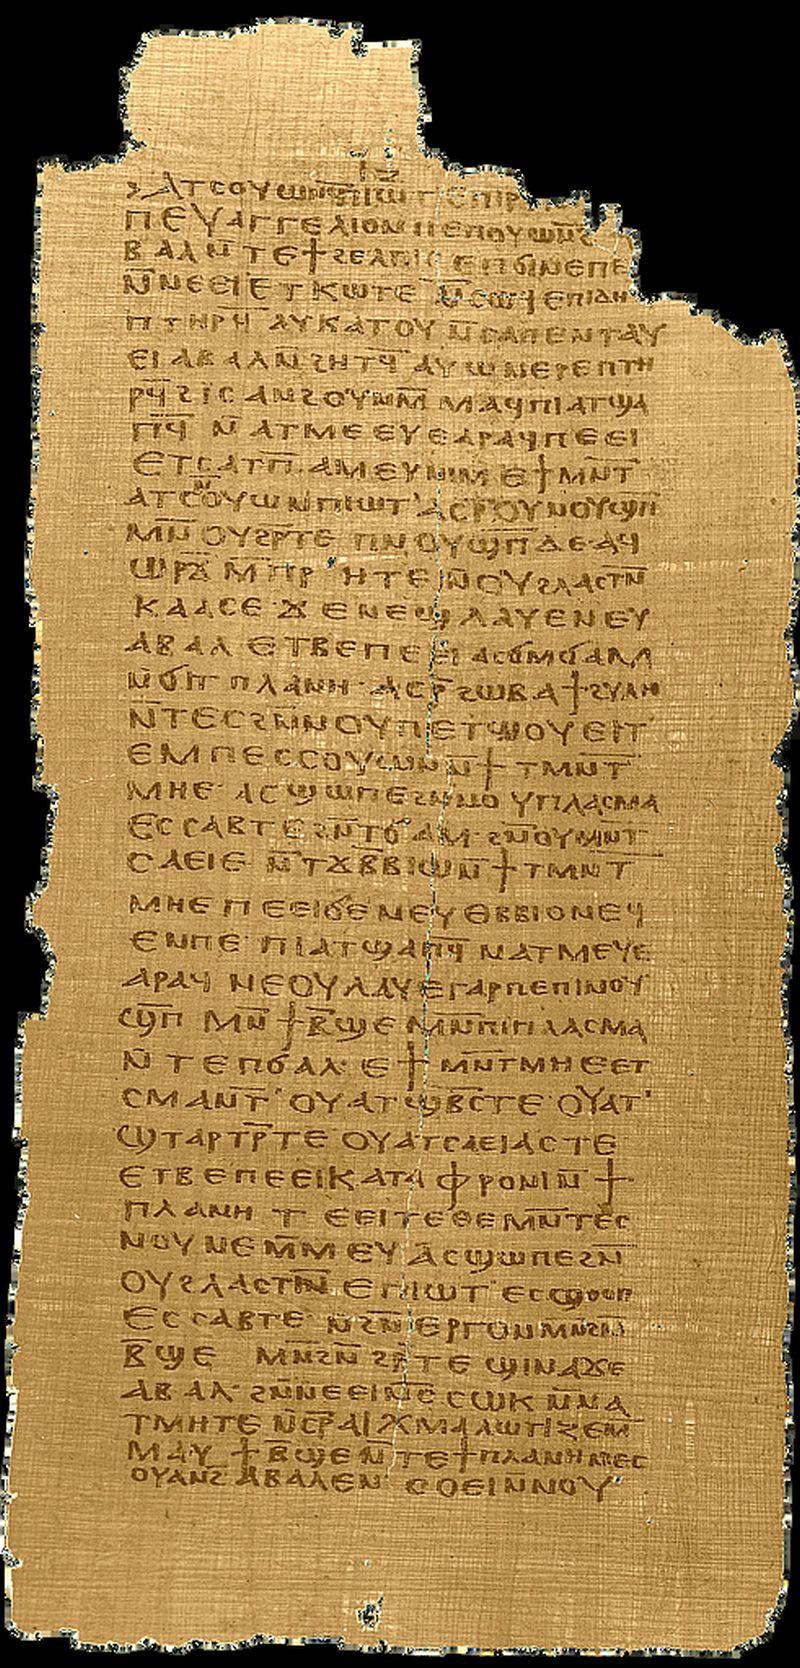 ⲓⲍ
ⲡⲉⲩⲁⲅⲅⲉⲗⲓⲟⲛ ⲡⲉ ⲡⲟⲩⲱⲛϩ̄
ⲁⲃⲁⲗ ⲛ̄ⲧⲉ ϯϩⲉⲗⲡⲓⲥ ⲉⲡϭⲓⲛⲉ ⲡⲉ
ⲛ̄ⲛⲉⲉⲓ ⲉⲧⲕⲱⲧⲉ ⲛ̄ⲥⲱϥ ⲉⲡⲓⲇⲏ
ⲡⲧⲏⲣϥ ⲁⲩⲕⲁⲧⲟⲩ ⲛ̄ⲥⲁ ⲡⲉⲛⲧⲁⲩ
ⲉⲓ ⲁⲃⲁⲗ ⲛ̄ϩⲏⲧϥ̄ ⲁⲩⲱ ⲛⲉⲣⲉⲡⲧⲏ
ⲣϥ̄ ϩⲓⲥⲁⲛϩⲟⲩⲛ ⲙ̄ⲙⲁϥ ⲡⲓⲁⲧϣⲁ
ⲡϥ̄ ⲛ̄ⲁⲧⲙⲉⲉⲩⲉ ⲁⲣⲁϥ ⲡⲉⲉⲓ
ⲉⲧⲥⲁⲧⲡ̄ ⲁⲙⲉⲩ ⲛⲓⲙ ⲉϯⲙⲛ̄ⲧ
ⲁⲧⲥⲟⲩⲱⲛ ⲡⲓⲱⲧ ⲁⲥⲣ̄ⲟⲩⲛⲟⲩϣⲡ̄
ⲙⲛ̄ ⲟⲩϩⲣ̄ⲧⲉ ⲡⲛⲟⲩϣⲡ̄ ⲇⲉ ⲁϥ
ⲱⲣϫ̄ ⲙ̄ⲡⲣⲏⲧⲉ ⲛ̄ⲟⲩϩⲗⲁⲥⲧⲛ̄
ⲕⲁⲁⲥⲉ ϫⲉ ⲛⲉϣ ⲗⲁⲩⲉ ⲛⲉⲩ
ⲁⲃⲁⲗ ⲉⲧⲃⲉ ⲡⲉⲉⲓ ⲁⲥϭⲙϭⲁⲙ
ⲛ̄ϭⲓ ϯⲡⲗⲁⲛⲏ ⲁⲥⲣ̄ ϩⲱⲃ ⲁϯϩⲩⲗⲏ
ⲛ̄ⲧⲉⲥ ϩⲛ̄ⲛ ⲟⲩⲡⲉⲧϣⲟⲩⲉⲓⲧ
ⲉⲙⲡⲉⲥⲥⲟⲩⲱⲛ ⲛ̄ϯⲧⲙⲛ̄ⲧ
ⲙⲏⲉ ⲁⲥϣⲱⲡⲉ ϩⲛ̄ⲛⲟⲩⲡⲗⲁⲥⲙⲁ
ⲉⲥⲥⲁⲃⲧⲉ ϩⲛ̄ ⲧϭⲁⲙ ϩⲛ̄ ⲟⲩⲙⲛ̄ⲧ
ⲥⲁⲉⲓⲉ ⲛ̄ⲧϫⲃ̄ⲃⲓⲱ ⲛ̄ϯⲧⲙⲛ̄ⲧ
ⲙⲏⲉ ⲡⲉⲉⲓ ϭⲉ ⲛⲉⲩⲑⲃⲃⲓⲟ ⲛⲉϥ
ⲉⲛ ⲡⲉ ⲡⲓⲁⲧϣⲁⲡϥ̄ ⲛⲁⲧⲙⲉⲩⲉ
ⲁⲣⲁϥ ⲛⲉⲟⲩⲗⲁⲩⲉ ⲅⲁⲣ ⲡⲉ ⲡⲓⲛⲟⲩ
ϣⲡ̄ ⲙⲛ̄ ϯⲃ̄ϣⲉ ⲙⲛ̄ ⲡⲓⲡⲗⲁⲥⲙⲁ
ⲛ̄ⲧⲉ ⲡϭⲁⲗ ⲉϯⲙⲛ̄ⲧⲙⲏⲉ ⲉⲧ
ⲥⲙⲁⲛⲧ̄ ⲟⲩⲁⲧϣⲃ̄ⲥⲧⲉ ⲟⲩⲁⲧ
ϣⲧⲁⲣⲧⲣ̄ⲧⲉ ⲟⲩⲁⲧⲥⲁⲉⲓⲁⲥ ⲧⲉ
ⲉⲧⲃⲉ ⲡⲉⲉⲓ ⲕⲁⲧⲁⲫⲣⲟⲛⲓ ⲛ̄ϯ
ⲡⲗⲁⲛⲏ ⲧⲉⲉⲓ ⲧⲉ ⲑⲉ ⲙⲛ̄ⲧⲉⲥ
ⲛⲟⲩⲛⲉ ⲙ̄ⲙⲉⲩ ⲁⲥϣⲱⲡⲉ ϩⲛ̄
ⲟⲩϩⲗⲁⲥⲧⲛ̄ ⲉⲡⲓⲱⲧ ⲉⲥϣⲟⲟⲡ
ⲉⲥⲥⲁⲃⲧⲉ ⲛ̄ϩⲛ̄ⲉⲣⲅⲟⲛ ⲙⲛ̄ ϩⲛ̄
ⲃ̄ϣⲉ ⲙⲛ̄ ϩⲛ̄ϩⲣ̄ⲧⲉ ϣⲓⲛⲁ ϫⲉ
ⲁⲃⲁⲗ ϩⲛ̄ ⲛⲉⲉⲓ ⲛⲥ̄ⲥⲱⲕ ⲛ̄ⲛⲁ
ⲧⲙⲏⲧⲉ ⲛ̄ⲥⲣ̄ⲁⲓⲭⲙⲁⲗⲱⲧⲓⲍⲉ ⲙ̄
ⲙⲁⲩ ϯⲃ̄ϣⲉ ⲛ̄ⲧⲉ ϯⲡⲗⲁⲛⲏ ⲛⲉⲥ
ⲟⲩⲁⲛϩ̄ ⲁⲃⲁⲗ ⲉⲛ ⲥⲟⲉⲓ ⲛ̄ⲛⲟⲩ